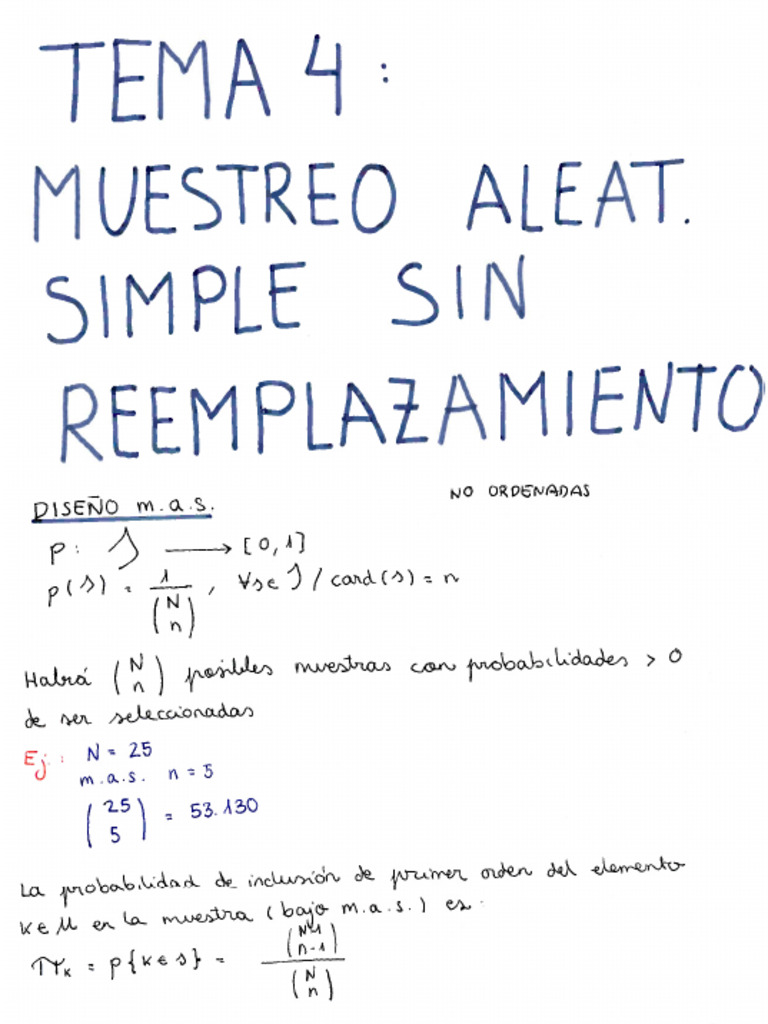 TEMA 4:
MUESTREO ALEAT.
SIMPLE SIN
REEMPLAZAMIENTO
NO ORDENADAS
DISEÑO m.a.s.
p: 𝒮 ⟶ [0,1]
p(s) = 1 / (N n), ∀s∈𝒮 / card(s) = n
Habrá (N n) posibles muestras con probabilidades > 0
de ser seleccionadas
Ej.: N = 25
m.a.s. n = 5
(25 5) = 53.130
La probabilidad de inclusión de primer orden del elemento
k∈U en la muestra (bajo m.a.s.) es:
πk = p{k∈s} = (N-1 n-1) / (N n)